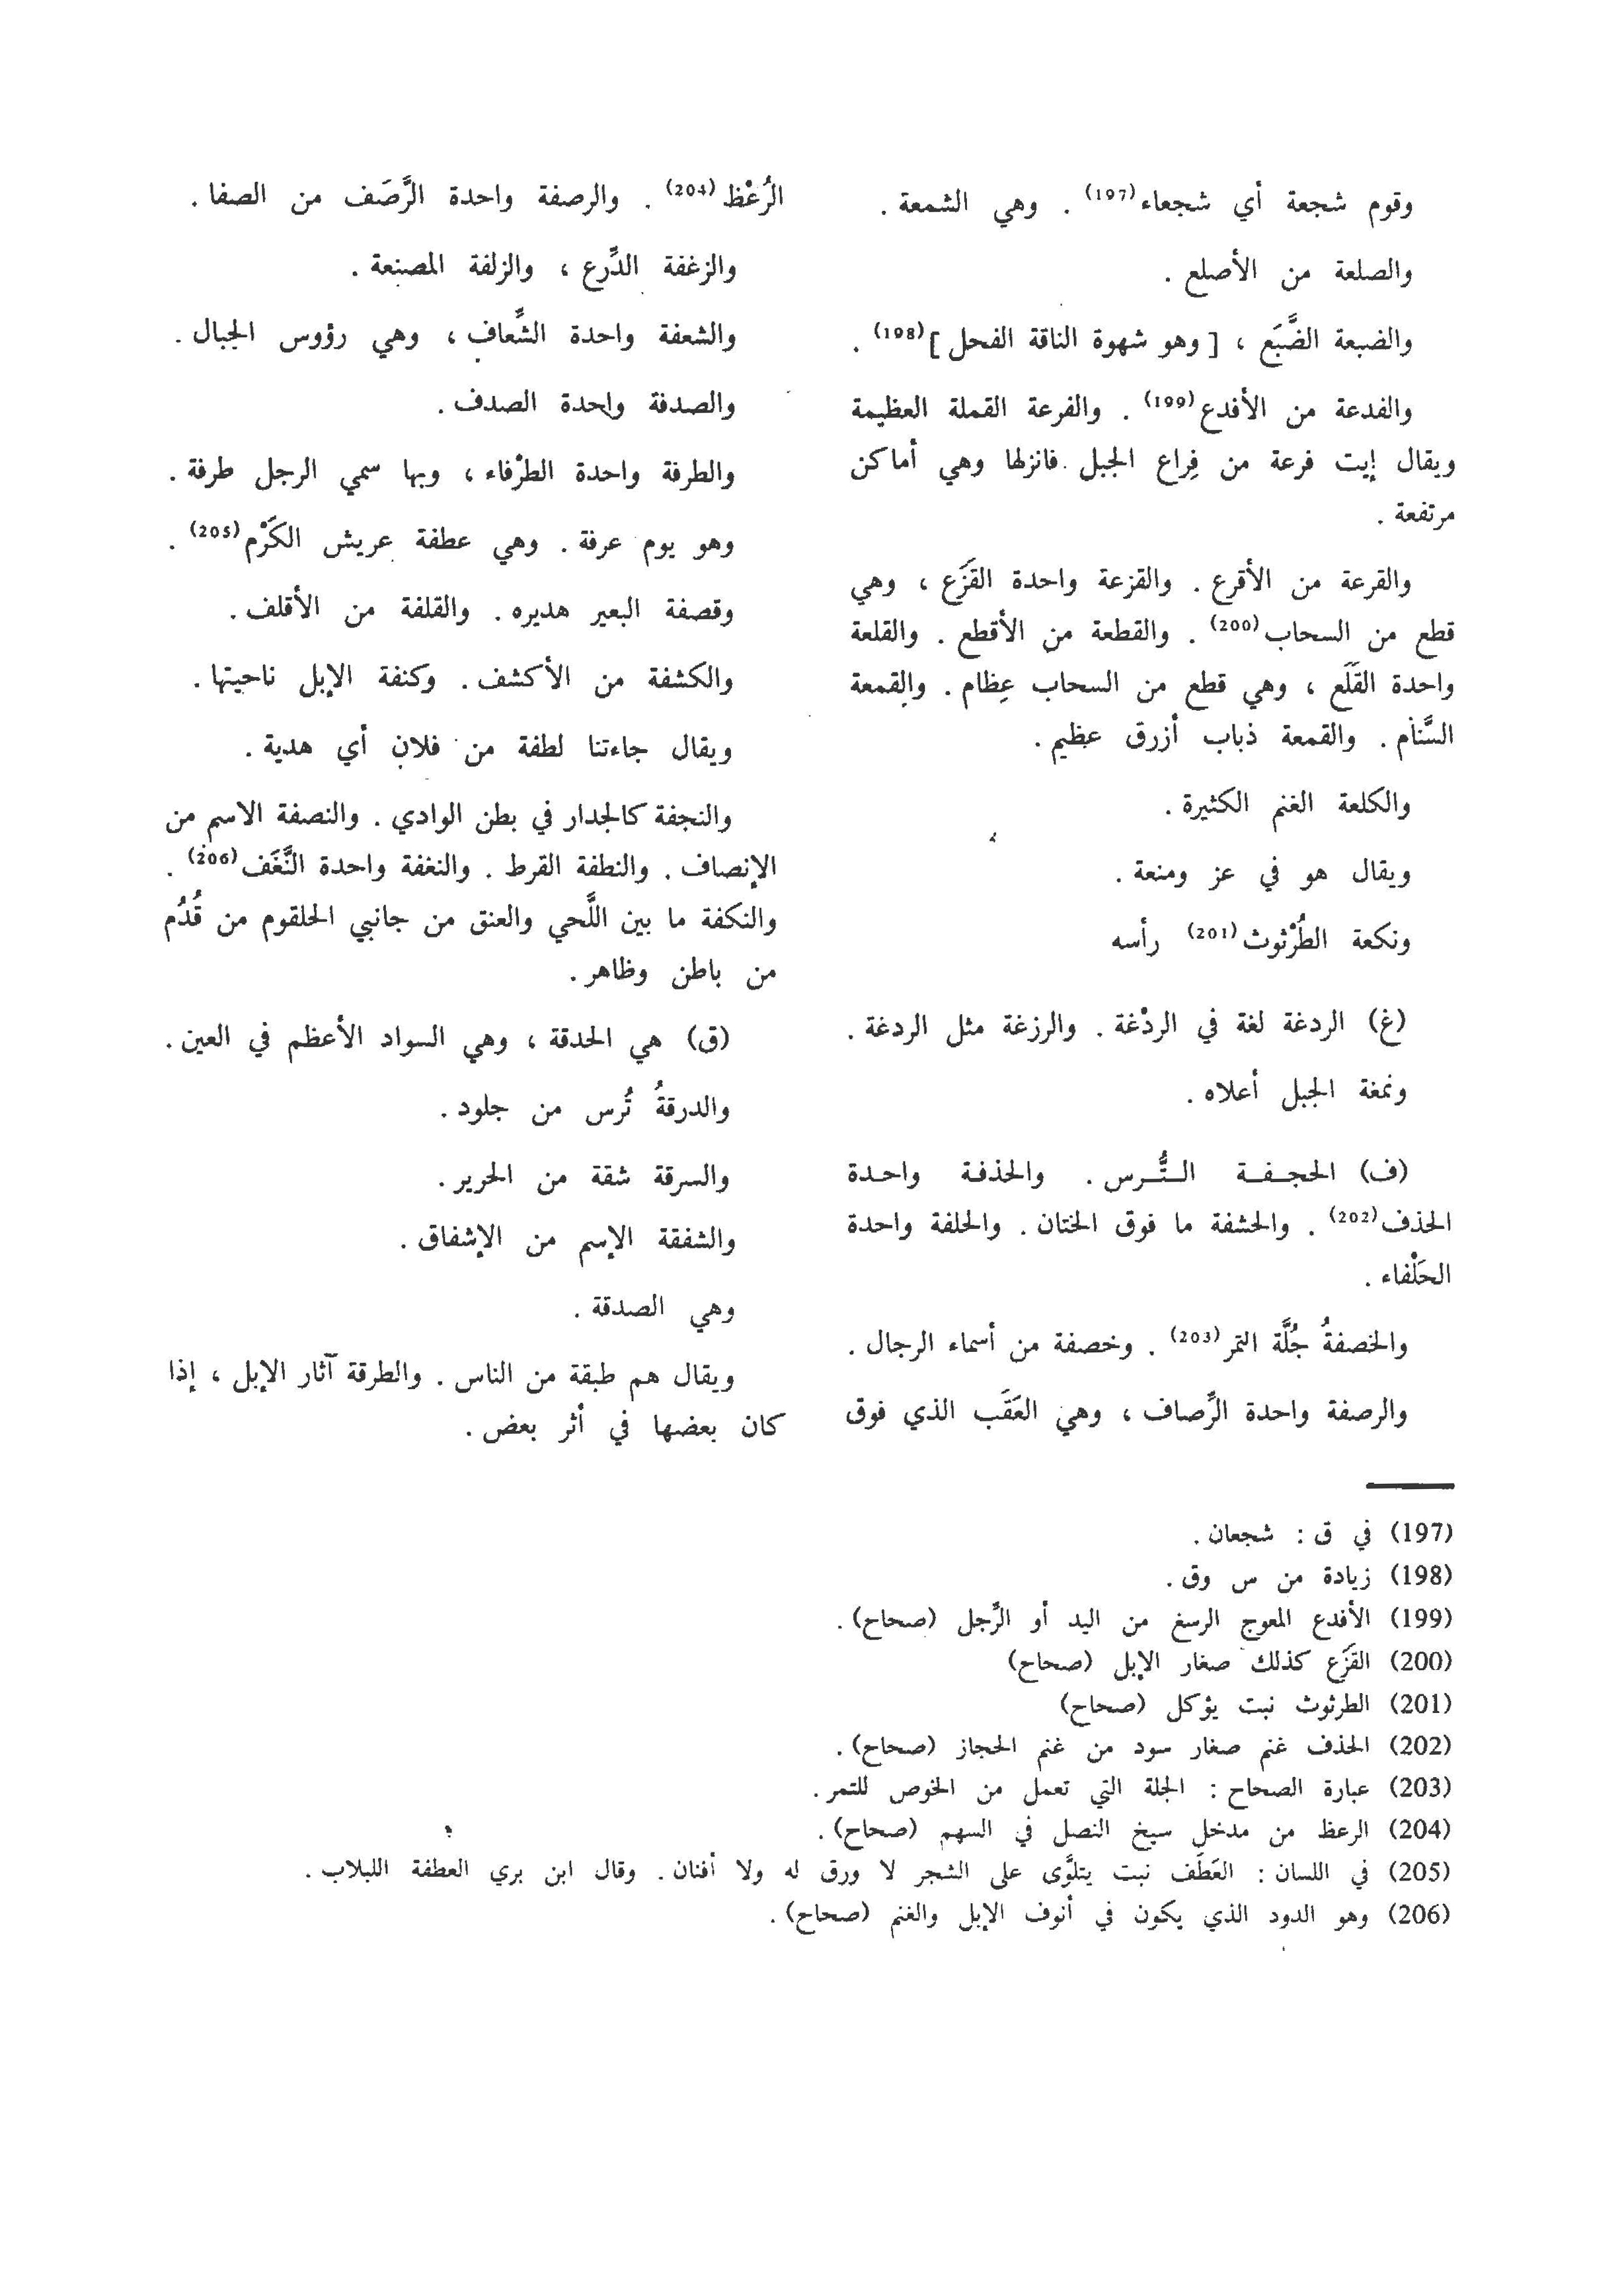 وقوم شجعة أي شجعاء(197) . وهي الشمعة .
والصلعة من الأصلع .
والضبعة الضَّبَع ، [ وهو شهوة الناقة الفحل ](198) .
والفدعة من الأفدع(199) . والفرعة القملة العظيمة
ويقال إيت فرعة من فِراع الجبل فانزلها وهي أماكن
مرتفعة .
والقرعة من الأقرع . والقزعة واحدة القَزَع ، وهي
قطع من السحاب(200) . والقطعة من الأقطع . والقلعة
واحدة القَلَع ، وهي قطع من السحاب عِظام . والقمعة
السَّنام . والقمعة ذباب أزرق عظيم .
والكلعة الغنم الكثيرة .
ويقال هو في عز ومنعة .
ونكعة الطُرْثوث(201) رأسه
(غ) الردغة لغة في الردْغة . والرزغة مثل الردغة .
ونمغة الجبل أعلاه .
(ف) الحجفة التُّرس . والحذفة واحدة
الحذف(202) . والحشفة ما فوق الختان . والحلفة واحدة
الحَلْفاء .
والخصفةُ جُلَّة التمر(203) . وخصفة من أسماء الرجال .
والرصفة واحدة الرِّصاف ، وهي العَقَب الذي فوق
الرُعْظ(204) . والرصفة واحدة الرَّصَف من الصفا .
والزغفة الدِّرع ، والزلفة المصنعة .
والشعفة واحدة الشِّعاف ، وهي رؤوس الجبال .
والصدفة واحدة الصدف .
والطرفة واحدة الطرْفاء ، وبها سمي الرجل طرفة .
وهو يوم عرفة . وهي عطفة عريش الكَرْم(205) .
وقصفة البعير هديره . والقلفة من الأقلف .
والكشفة من الأكشف . وكنفة الإبل ناحيتها .
ويقال جاءتنا لطفة من فلان أي هدية .
والنجفة كالجدار في بطن الوادي . والنصفة الاسم من
الإنصاف . والنطفة القرط . والنغفة واحدة النَّغَف(206) .
والنكفة ما بين اللَّحي والعنق من جانبي الحلقوم من قُدُم
من باطن وظاهر .
(ق) هي الحدقة ، وهي السواد الأعظم في العين .
والدرقةُ تُرس من جلود .
والسرقة شقة من الحرير .
والشفقة الإسم من الإشفاق .
وهي الصدقة .
ويقال هم طبقة من الناس . والطرقة آثار الإبل ، إذا
كان بعضها في أثر بعض .
(197) في ق : شجعان .
(198) زيادة من س وق .
(199) الأفدع المعوج الرسغ من اليد أو الرِّجل (صحاح) .
(200) القَزَع كذلك صغار الإبل (صحاح)
(201) الطرثوث نبت يؤكل (صحاح)
(202) الحذف غنم صغار سود من غنم الحجاز (صحاح) .
(203) عبارة الصحاح : الجلة التي تعمل من الخوص للتمر .
(204) الرعظ من مدخل سيخ النصل في السهم (صحاح) .
(205) في اللسان : العَطَف نبت يتلوَّى على الشجر لا ورق له ولا أفنان . وقال ابن بري العطفة اللبلاب .
(206) وهو الدود الذي يكون في أنوف الإبل والغنم (صحاح) .